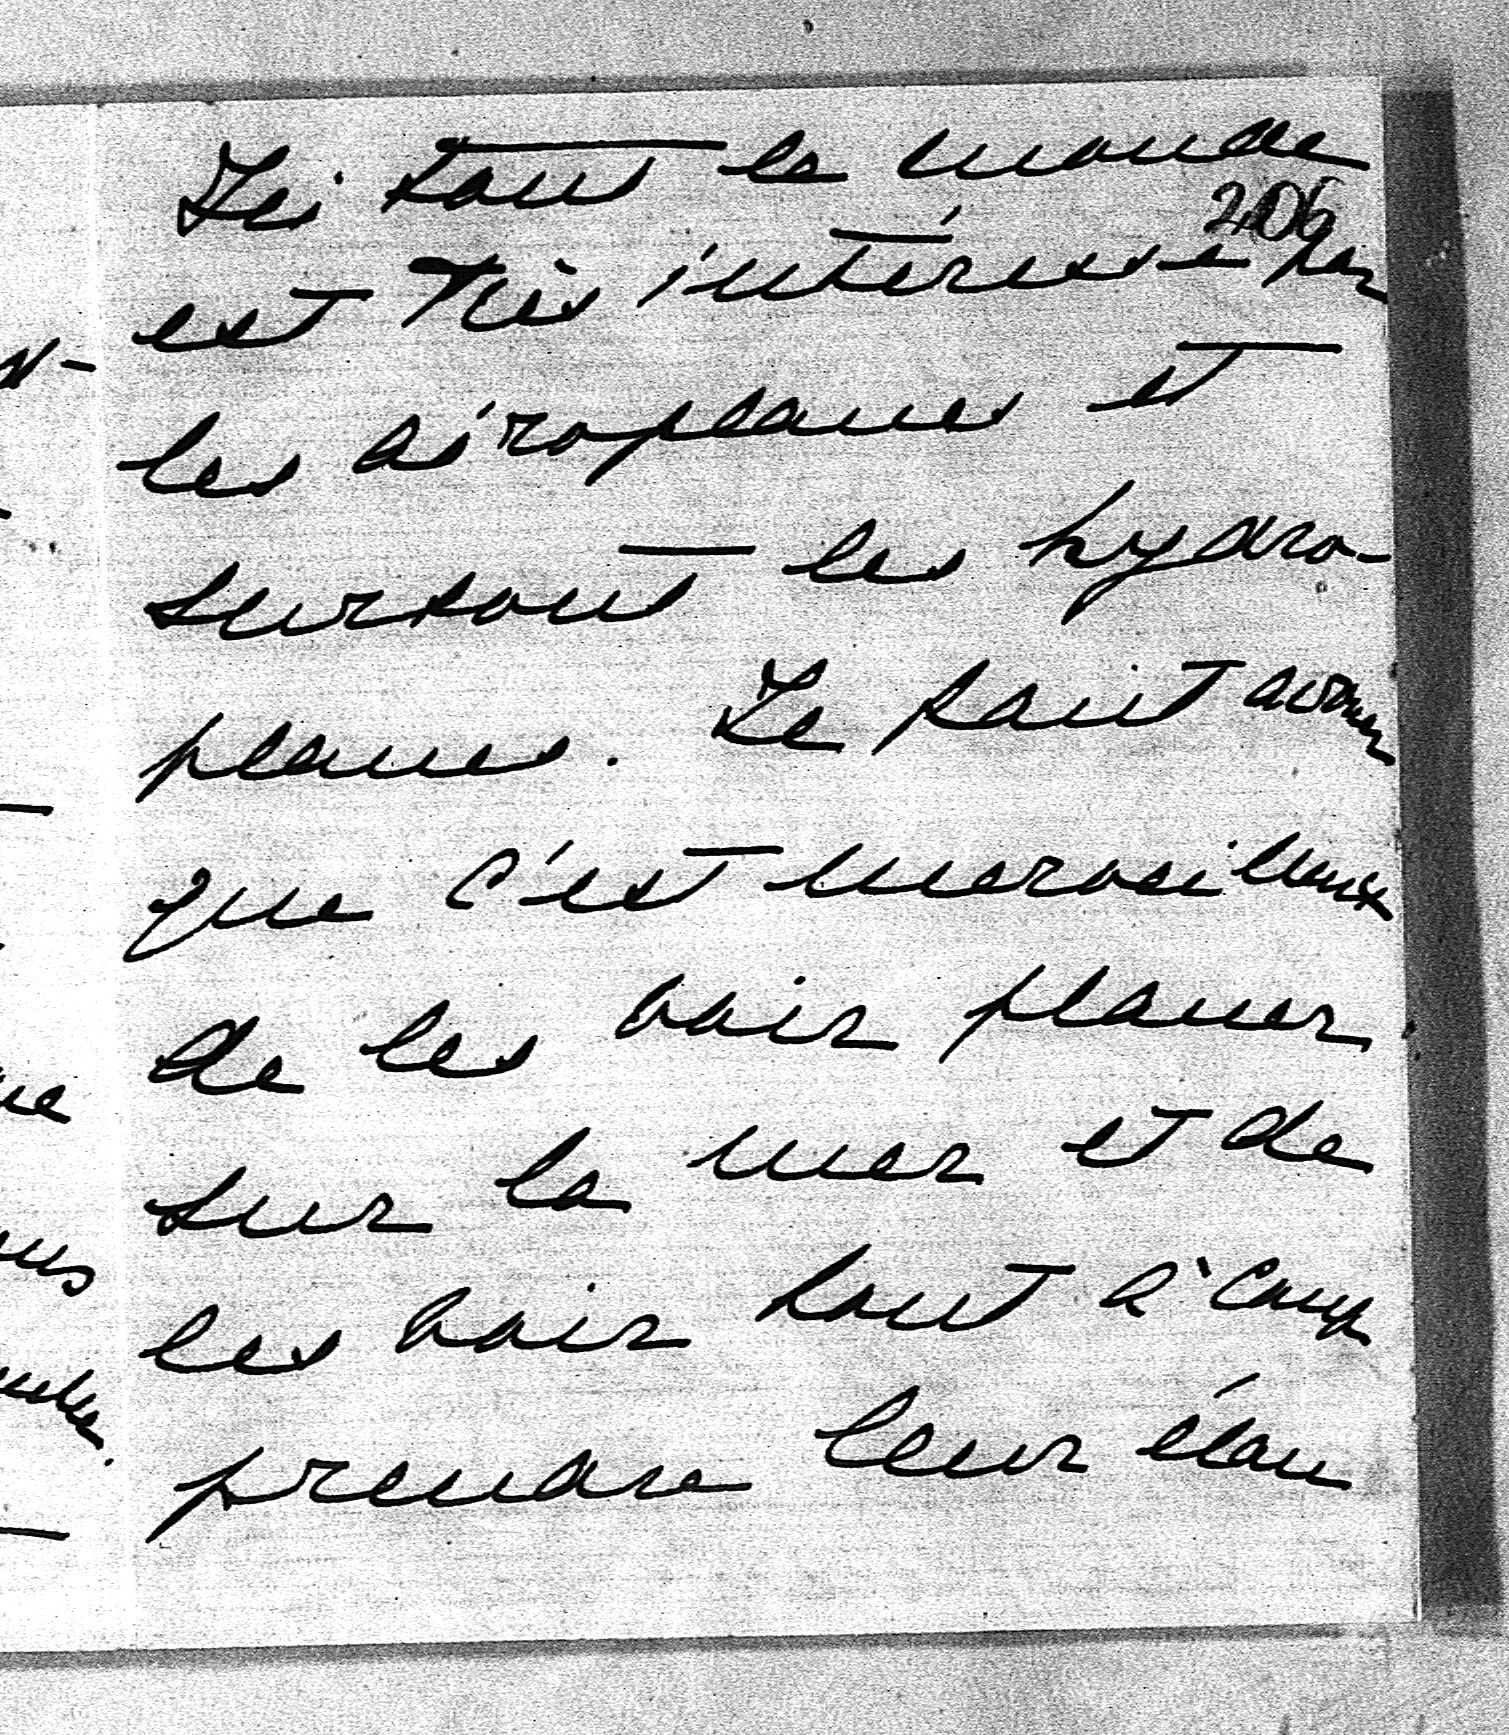 Ici tout le monde
206
est très intéressé par
les aéroplanes et
surtout les hydro-
planes. Il faut avouer
que c'est merveilleux
de les voir planer
sur la mer et de
les voir tout à coup
prendre leur élan